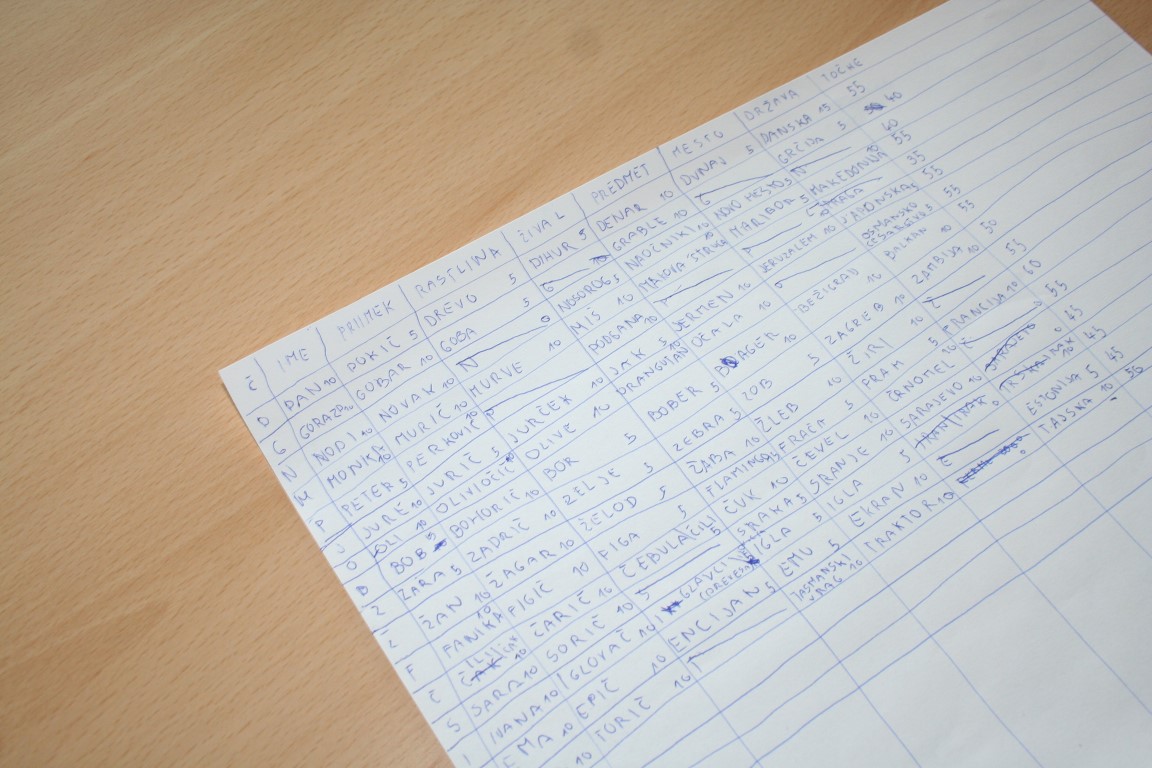 Č IME PRIIMEK RASTLINA ŽIVAL PREDMET MESTO DRŽAVA TOČKE
D DAN 10 DOKIČ 5 DREVO 5 DIHUR 5 DENAR 10 DUNAJ 5 DANSKA 15 55
G GORAZD 10 GOBAR 10 GOBA 5 G GRABLE 10 G GRČIJA 5 40
N NODI 10 NOVAK 10 N NOSOROG 5 NAOČNIKI 10 NOVO MESTO 5 N 40
M MONIKA 10 MURIČ 10 MURVE 10 MIŠ 10 MAJOVA ŠTRKA MARIBOR 5 MAKEDONIJA 10 55
P PETER 5 PERKOVIČ 10 P PODGANA 10 P P 35
J JURE 10 JURIČ 5 JURČEK 10 JAK 5 JERMEN 10 JERUZALEM 10 JAPONSKA 5 55
O OLI 10 OLIVIOČIČ 10 OLIVE 10 ORANGUTAN OČALA 10 O OSMANSKO CESARSTVO 5 55
B BOB 5 BOMORIČ 10 BOR 5 BOBER 5 BAGER 10 BEŽIGRAD 10 BALKAN 10 55
Z ZARA 5 ZADRIČ 10 ZELJE 5 ZEBRA 5 ZOB 5 ZAGREB 10 ZAMBIJA 10 50
Ž ŽAN 10 ŽAGAR 10 ŽELOD 5 ŽABA 10 ŽLEB 10 ŽIRI 10 Ž 55
F FANIKA 10 FIGIČ 10 FIGA 5 FLAMINGO FRAČA 5 FRAM 5 FRANCIJA 10 60
Č ČILI ČARIČ 10 ČEBULA ČILI ČUK 10 ČEVEL 10 ČRNOMEL 10 55
S SARA 10 SORIČ 10 S SRAKA 5 SRANJE 10 SARAJEVO 10 45
I IVANA 10 IGLOVAČ 10 IGLAVCI (DREVESA) IGLA 5 IGLA 5 45
E EMA 10 EPIČ 10 ENCIJAN 5 EMU 5 EKRAN 10 E ESTONIJA 5 45
10 TORIČ 10 TASMANSKI VRAG 10 TRAKTOR 10 TAJSKA 10 50